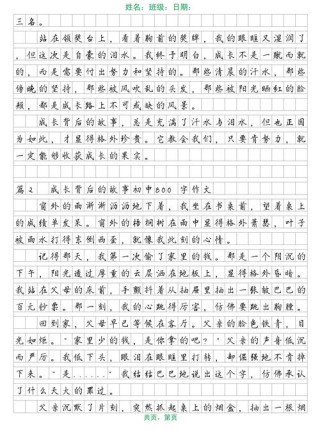 姓名：班级：日期：
三名。
站在领奖台上，看着胸前的奖牌，我的眼眶又湿润了
。但这次是自豪的泪水。我终于明白，成长不是一蹴而就
的，而是需要付出努力和坚持的。那些清晨的汗水，那些
傍晚的坚持，那些被风吹乱的头发，那些被阳光晒红的脸
颊，都是成长路上不可或缺的风景。
成长背后的故事，总是充满了汗水与泪水，但也正因
为如此，才显得格外珍贵。它教会我们，只要肯努力，就
一定能够收获成长的果实。
篇2 成长背后的故事初中800 字作文
窗外的雨淅淅沥沥地下着，我坐在书桌前，望着桌上
的成绩单发呆。窗外的梧桐树在雨中显得格外萧瑟，叶子
被雨水打得东倒西歪，就像我此刻的心情。
记得那天，我第一次偷了家里的钱。那是一个阴沉的
下午，阳光透过厚重的云层洒在地板上，显得格外昏暗。
我站在父母的床前，手颤抖着从抽屉里抽出一张皱巴巴的
百元钞票。那一刻，我的心跳得厉害，仿佛要跳出胸膛。
回到家，父母早已等候在客厅。父亲的脸色铁青，目
光如炬。"家里少的钱，是你拿的吧？"父亲的声音低沉
而严厉。我低下头，眼泪在眼眶里打转，却倔强地不肯掉
下来。"是......"我结结巴巴地说出这个字，仿佛承认
了什么天大的罪过。
父亲沉默了片刻，突然抓起桌上的烟盒，抽出一根烟
共页，第页